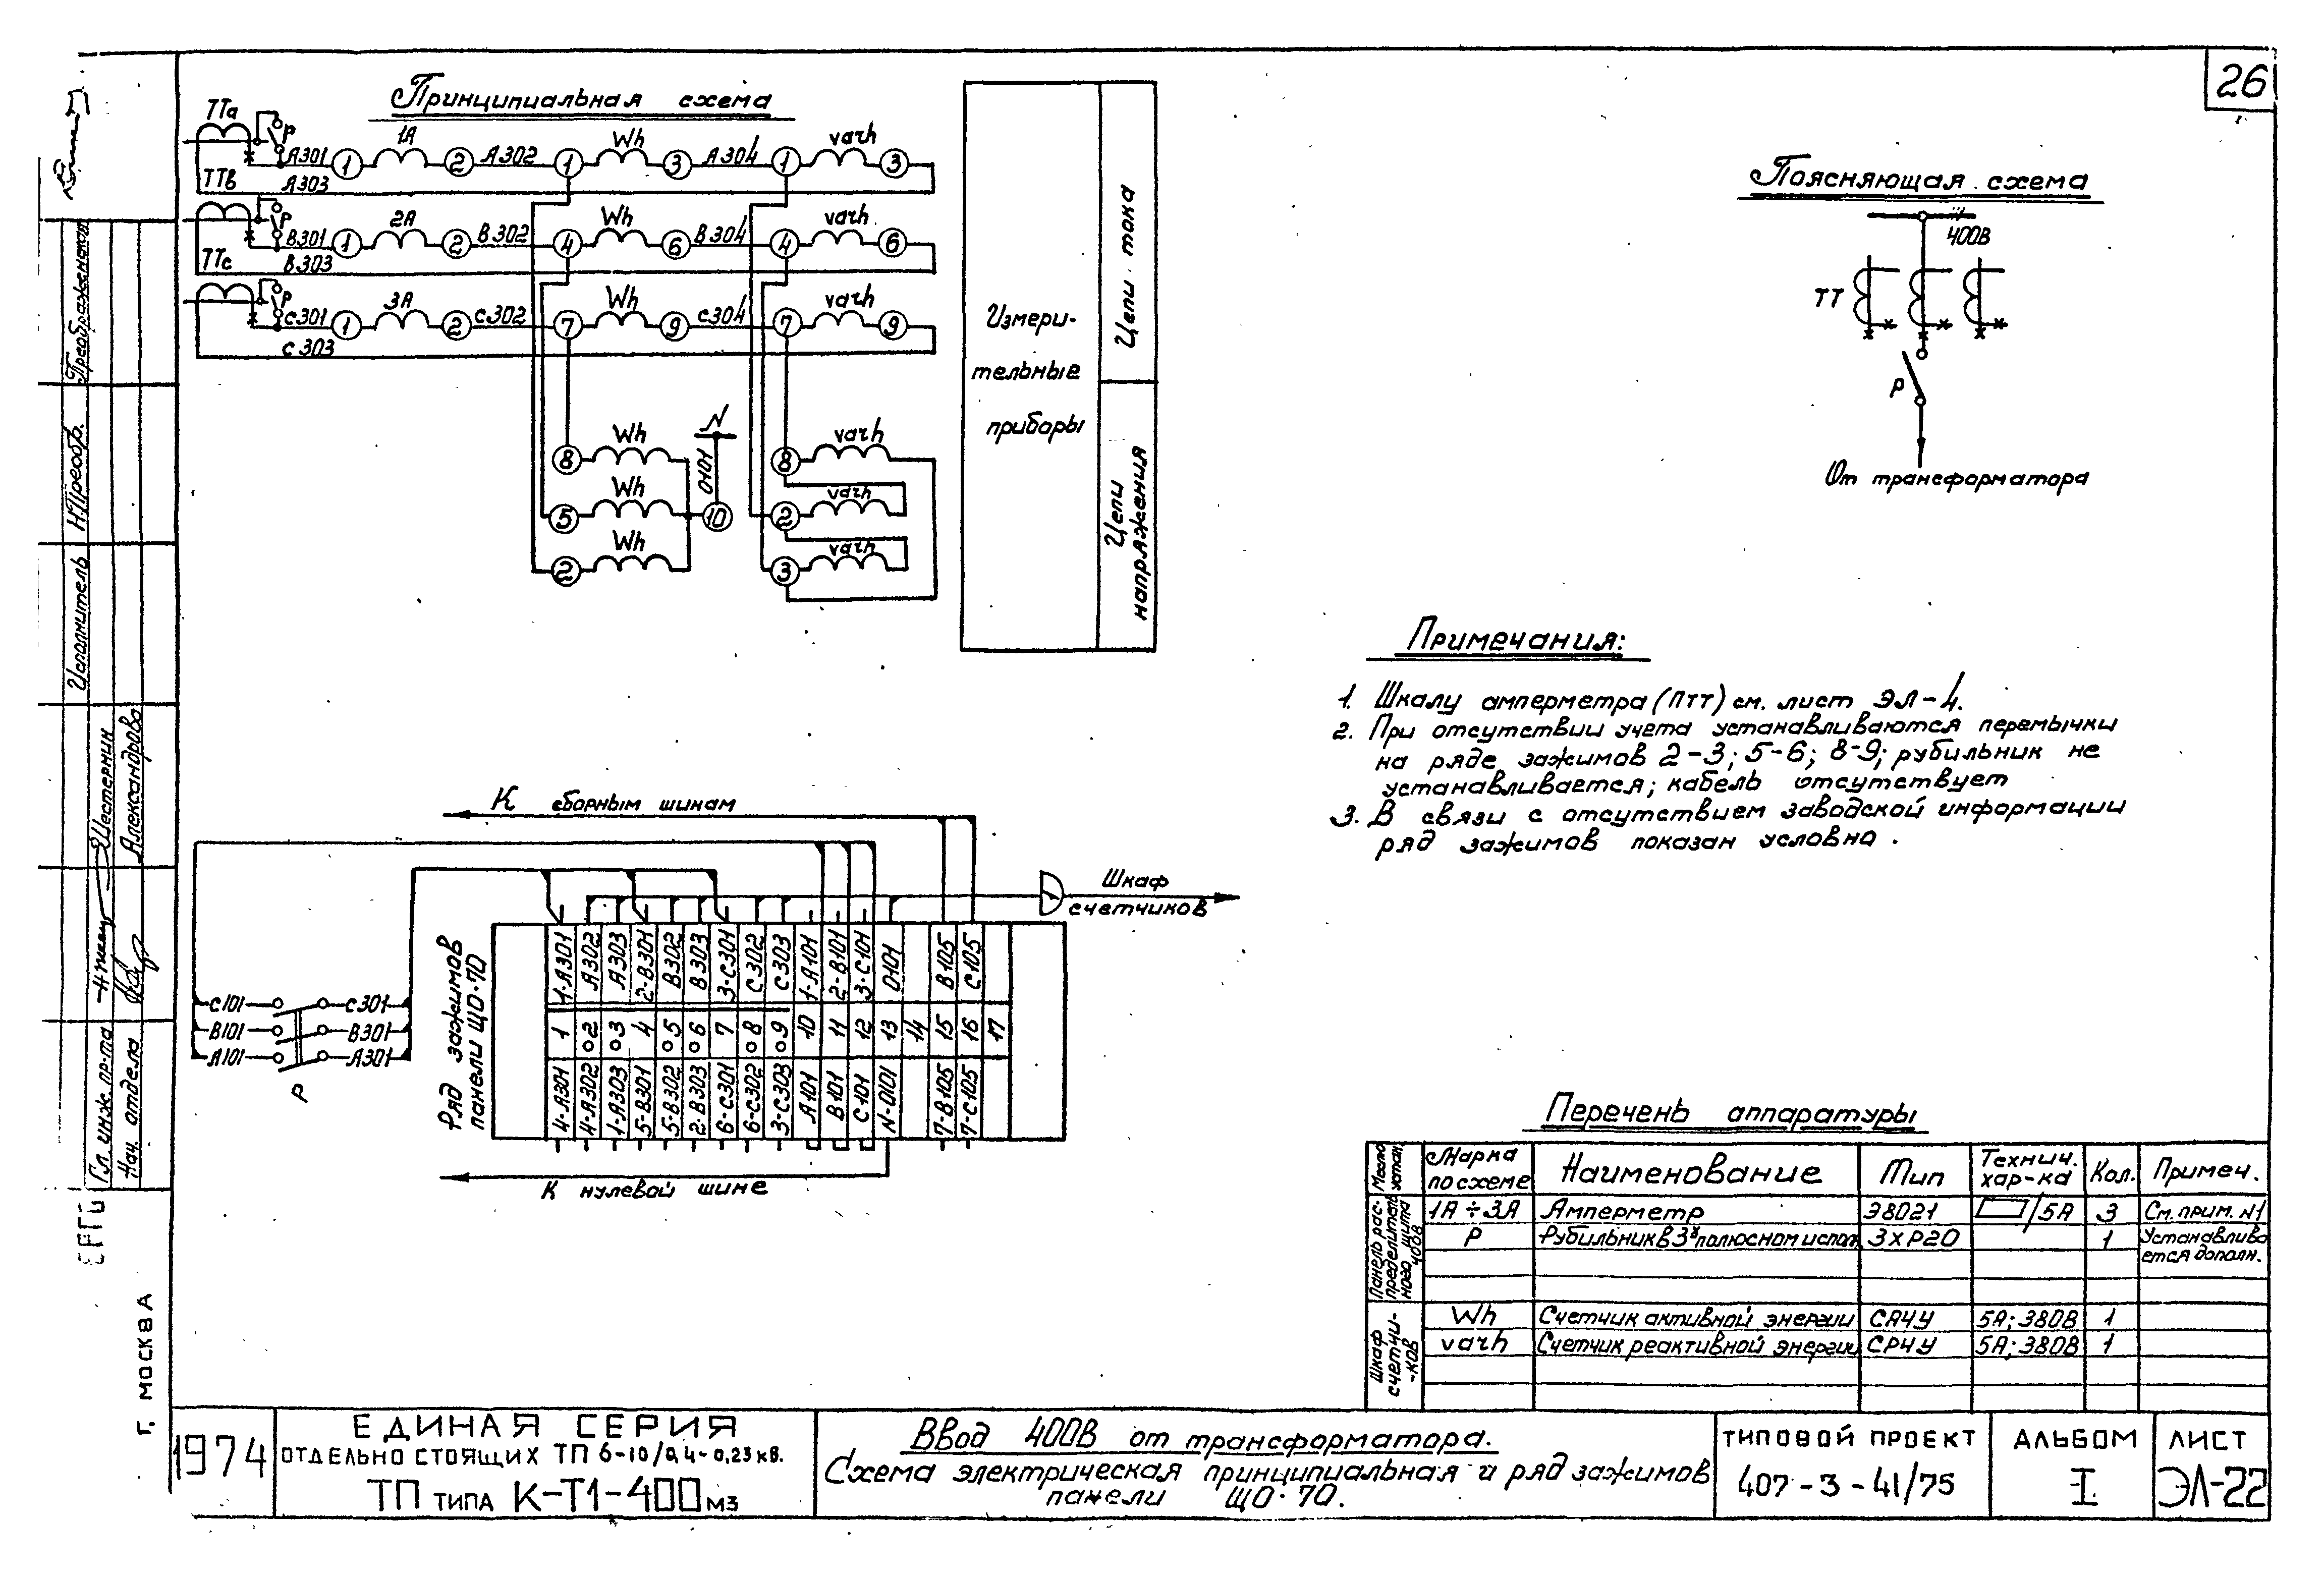 26
Принципиальная схема
ТТа
Р
А301
1
1А
2
А302
1
Wh
3
А304
1
varh
3
ТТв
А303
Р
В301
1
2А
2
В302
4
Wh
6
В304
4
varh
6
ТТс
В303
Р
С301
1
3А
2
С302
7
Wh
9
С304
7
varh
9
С303
8
Wh
N
0101
5
Wh
10
2
Wh
8
varh
2
varh
3
varh
Измери-
тельные
приборы
Цепи тока
Цепи
напряжения
Поясняющая схема
400В
ТТ
Р
От трансформатора
Примечания:
1. Шкалу амперметра (Птт) см. лист ЭЛ-4.
2. При отсутствии учета устанавливаются перемычки
на ряде зажимов 2-3; 5-6; 8-9; рубильник не
устанавливается; кабель отсутствует
3. В связи с отсутствием заводской информации
ряд зажимов показан условно.
К сборным шинам
Шкаф
счетчиков
Ряд зажимов
панели ЩО-70
1-А301
А302
А303
2-В301
В302
В303
3-С301
С302
С303
1-А101
2-В101
3-С101
0101
В105
С105
1
2
3
4
5
6
7
8
9
10
11
12
13
14
15
16
17
4-А301
4-А302
1-А303
5-В301
5-В302
2-В303
6-С301
6-С302
3-С303
А101
В101
С101
N-0101
7-В105
7-С105
С101
С301
В101
В301
А101
А301
Р
К нулевой шине
Перечень аппаратуры
Место устан.
Марка по схеме
Наименование
Тип
Технич. хар-ка
Кол.
Примеч.
Панель распределительного щита 400В
1А÷3А Амперметр Э8021 /5А 3 См. прим. №1
Р Рубильник в 3х полюсном испол. 3хР20 1 Устанавливается дополн.
Шкаф счетчи-ков
Wh Счетчик активной энергии СА4У 5А; 380В 1
varh Счетчик реактивной энергии СР4У 5А; 380В 1
Преображенская
Н.Преобр.
Исполнитель
Шестерник
Александрова
Гл. инж. пр-та
Нач. отдела
г. МОСКВА
1974
ЕДИНАЯ СЕРИЯ
ОТДЕЛЬНО СТОЯЩИХ ТП 6-10/0,4-0,23 кв.
ТП ТИПА К-Т1-400 м3
Ввод 400В от трансформатора.
Схема электрическая принципиальная и ряд зажимов
панели ЩО-70.
ТИПОВОЙ ПРОЕКТ
407-3-41/75
АЛЬБОМ
I
ЛИСТ
ЭЛ-22